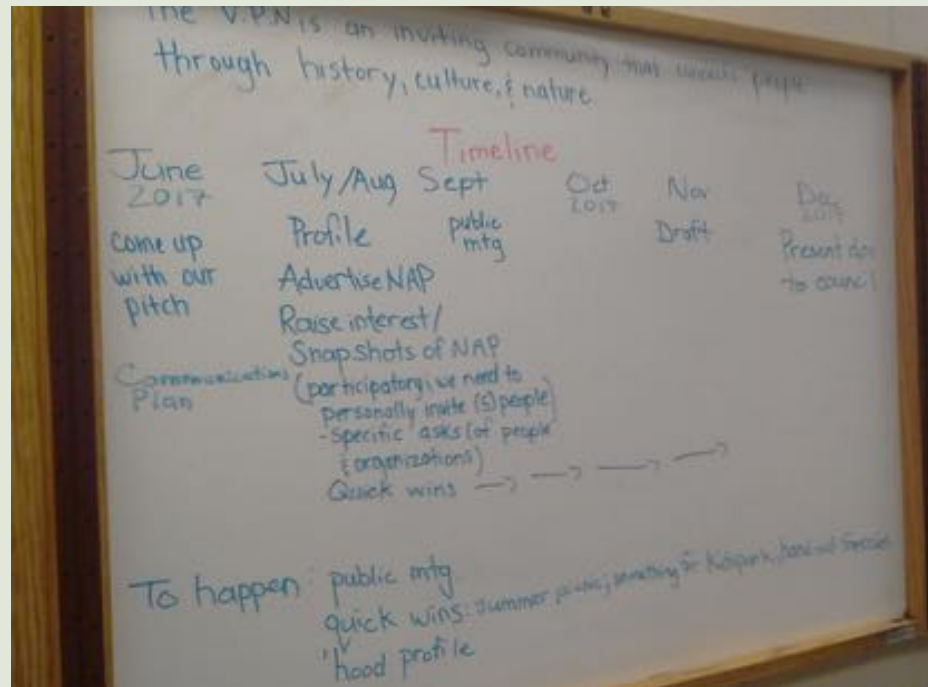 The V.P.N is an inviting community that people
through history, culture, & nature
Timeline
June 2017 July/Aug Sept Oct 2017 Nov Dec 2017
come up with our pitch
Communications Plan
Profile
Advertise NAP
Raise interest/
Snapshots of NAP
(participatory; we need to
personally invite (5) people)
-specific asks (of people
& organizations)
Quick wins → → → →
public mtg
Draft
Present doc
to council
To happen: public mtg
quick wins: summer picnic; something hand out
'hood profile